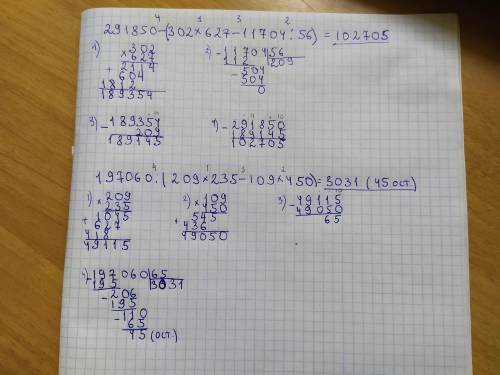 4 1 3 2
291850-(302×627-11704:56)=102705
1) ×302 2) -11704|56
627 112 |209
+2114 -504
604 504
1812 0
189354
3) -189354 4) -291850
209 189145
189145 102705
4 1 3 2
197060:(209×235-109×450)=3031 (45 ост.)
1) ×209 2) ×109 3) -49115
235 450 49050
+1045 +545 65
627 436
418 49050
49115
4) -197060|65
195 |3031
-206
195
-110
65
45 (ост.)